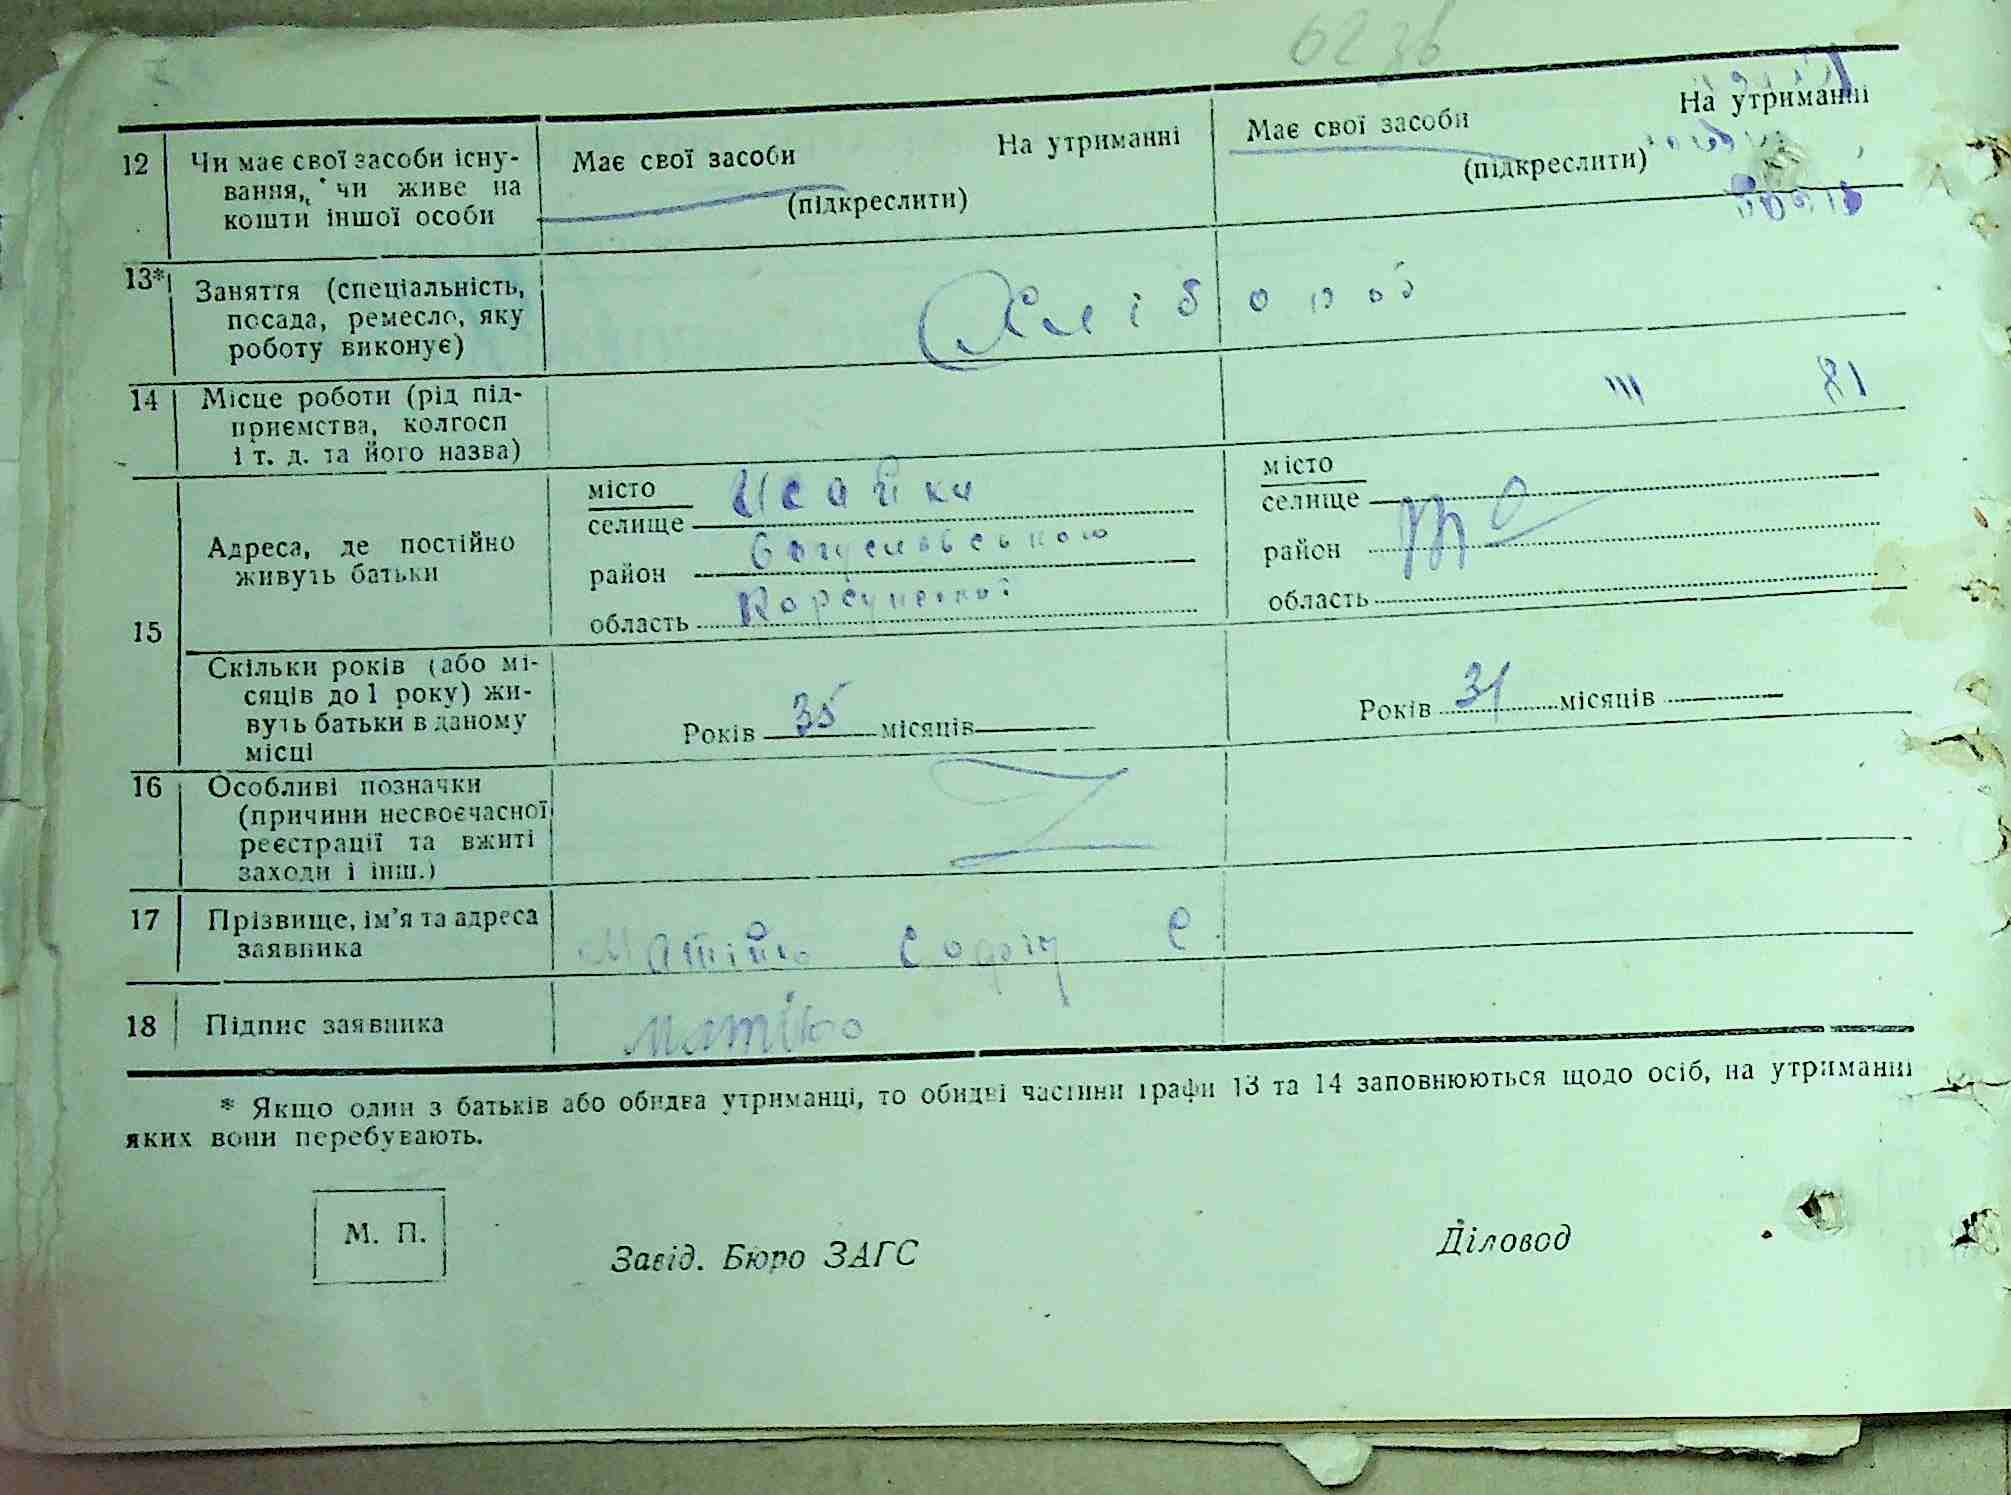 62 зв
12
Чи має свої засоби існу-
вання, чи живе на
кошти іншої особи
Має свої засоби На утриманні
(підкреслити)
Має свої засоби На утриманні
(підкреслити)
13*
Заняття (спеціальність,
посада, ремесло, яку
роботу виконує)
Хлібороб
14
Місце роботи (рід під-
приємства, колгосп
і т. д. та його назва)
15
Адреса, де постійно
живуть батьки
місто
селище Исайки
район Богуславського
область Корсунської
місто
селище
район
область
Скільки років (або мі-
сяців до 1 року) жи-
вуть батьки в даному
місці
Років 35 місяців
Років 31 місяців
16
Особливі позначки
(причини несвоєчасної
реєстрації та вжиті
заходи і інш.)
17
Прізвище, ім'я та адреса
заявника
Матійко С.
18
Підпис заявника
* Якщо один з батьків або обидва утриманці, то обидві частини графи 13 та 14 заповнюються щодо осіб, на утриманні
яких вони перебувають.
М. П.
Завід. Бюро ЗАГС
Діловод